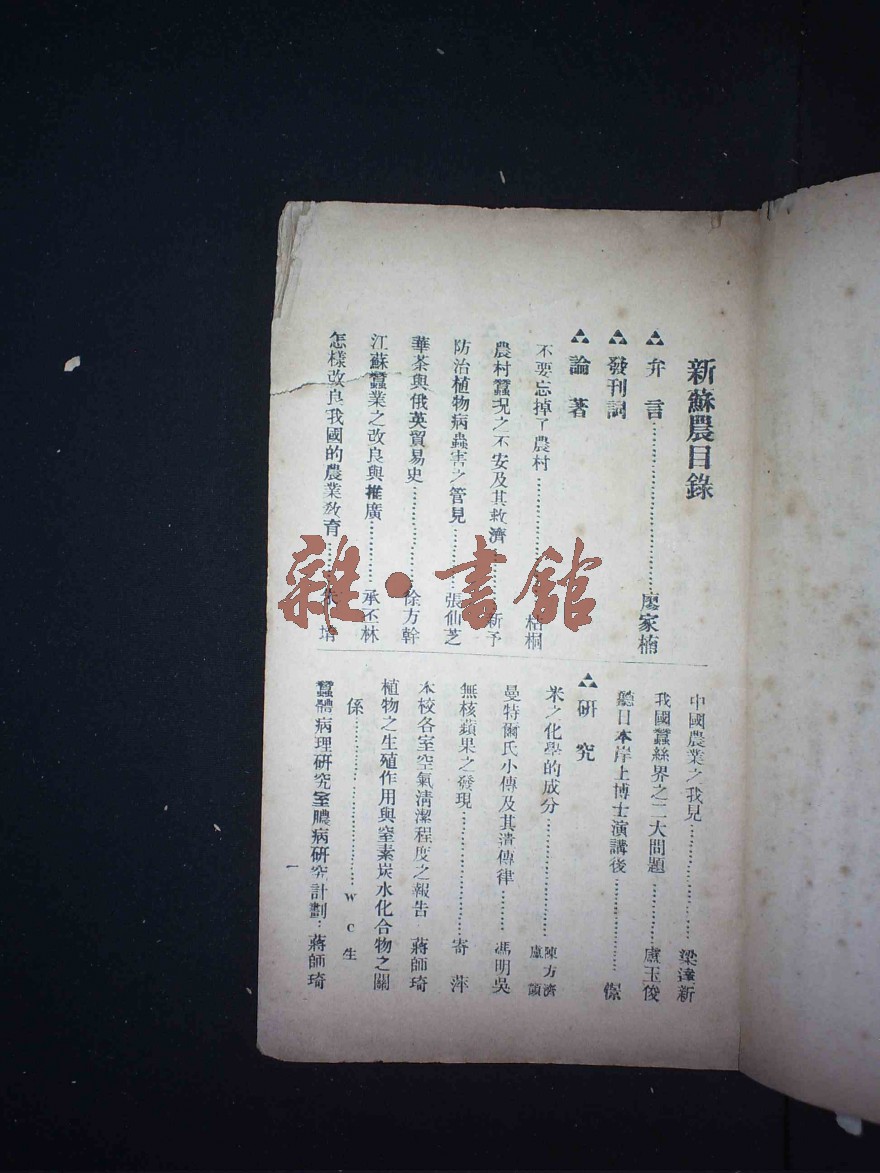 新蘇農目錄
弁言……廖家楠
發刊詞
論著
不要忘掉了農村……梧桐
農村蠶況之不安及其救濟……新予
防治植物病蟲害之管見……張仙芝
華茶與俄英貿易史……徐方幹
江蘇蠶業之改良與推廣……承丕林
怎樣改良我國的農業教育……
中國農業之我見……梁達新
我國蠶絲界之二大問題……盧玉俊
聽日本岸上博士演講後……
研究
米之化學的成分……陳方濟 盧頴
曼特爾氏小傳及其遺傳律……馮明吳
無核蘋果之發現……寄萍
本校各室空氣清潔程度之報告 蔣師琦
植物之生殖作用與窒素炭水化合物之關
係……WC生
蠶體病理研究室膿病研究計劃…蔣師琦
一
雜·書館